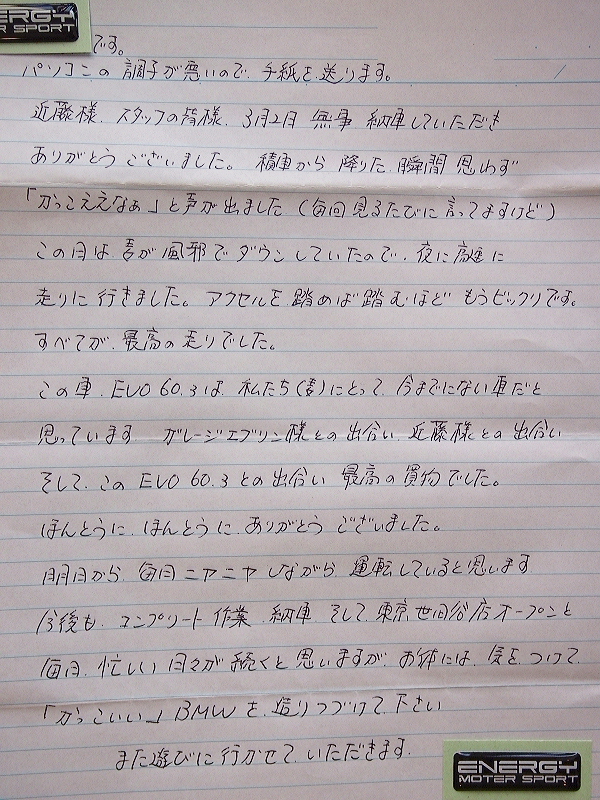 ENERGY
MOTOR SPORT
です。
パソコンの調子が悪いので、手紙を送ります。
近藤様、スタッフの皆様、3月2日 無事 納車していただき
ありがとうございました。 積車から 降りた 瞬間 思わず
「かっこええなぁ」と声が出ました(毎回見るたびに言ってますけど)
この日は妻が風邪でダウンしていたので、夜に高速に
走りに行きました。アクセルを踏めば踏むほど もうビックリです。
すべてが、最高の走りでした。
この車、EVO 60.3は、私たち(妻)にとって、今までにない車だと
思っています ガレージエブリン様との出会い、近藤様との出会い
そして、この EVO 60.3 との出会い 最高の買物でした。
ほんとうに、ほんとうに、ありがとう ございました。
明日から、毎日ニヤニヤしながら 運転していると思います
今後も、コンプリート作業、納車 そして、東京世田谷店オープンと
毎日、忙しい日々が続くと思いますが、お体には、気をつけて、
「かっこいい」BMWを、造りつづけて下さい
また遊びに行かせて、いただきます。
ENERGY
MOTOR SPORT